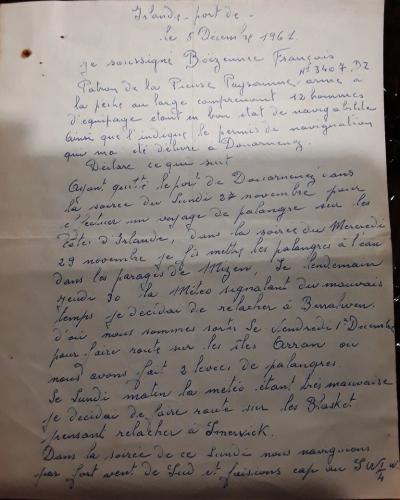 Irlande - port de -
le 5 Decembre 1961.
je soussigné Boëzennec François
N° 3407. DZ
Patron de la Pieuse Paysanne armé a
la pêche au large comprenant 12 hommes
d'equipage étant en bon état de navigabilité
ainsi que l'indique le permis de navigation
qui m'a été délivré a Douarnenez.
Déclare ce qui suit
Ayant quitté le port de Douarnenez dans
la soirée du Lundi 27 novembre pour
éffectuer un voyage de palangre sur les
Côtes d'Irlande, dans la soirée du Mercredi
29 novembre je fis mettre les palangres à l'eau
dans les parages de Mizen, Le lendemain
jeudi 30 la Météo signalant du mauvais
temps je décidai de relacher à Berrahven.
d'où nous sommes sortis le vendredi 1er Decembre
pour faire route sur les îles Arran ou
nous avons fait 2 levées de palangres.
Le Lundi matin la météo étant très mauvaise
je decidai de faire route sur les Blasket
pensant relacher à Smerwick.
Dans la soirée de ce Lundi nous naviguions
par fort vent de Sud et faisions cap au SW 1/4 W